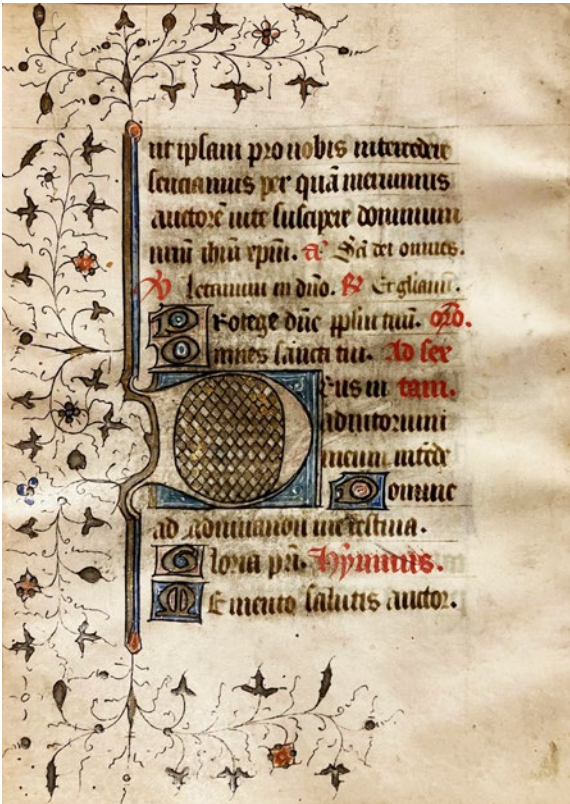 ut ipsam pro nobis intercedere
senciamus per quã meruimus
auctorẽ uite suscipere dominum
nrm̃ ihũ xpm̃. a᷒ Sc̃i dei omnes.
℣ letamini in dño. ℟ Et gliamĩ.
Protege dñe pplm̃ tuũ. or̃o.
Omnes sancti tui. Ad sex
Deus in tam.
adiutorium
meum intẽde
Domine
ad adiuuandũ me festina.
Gloria pr̃i. Hymnus.
Memento salutis auctor.